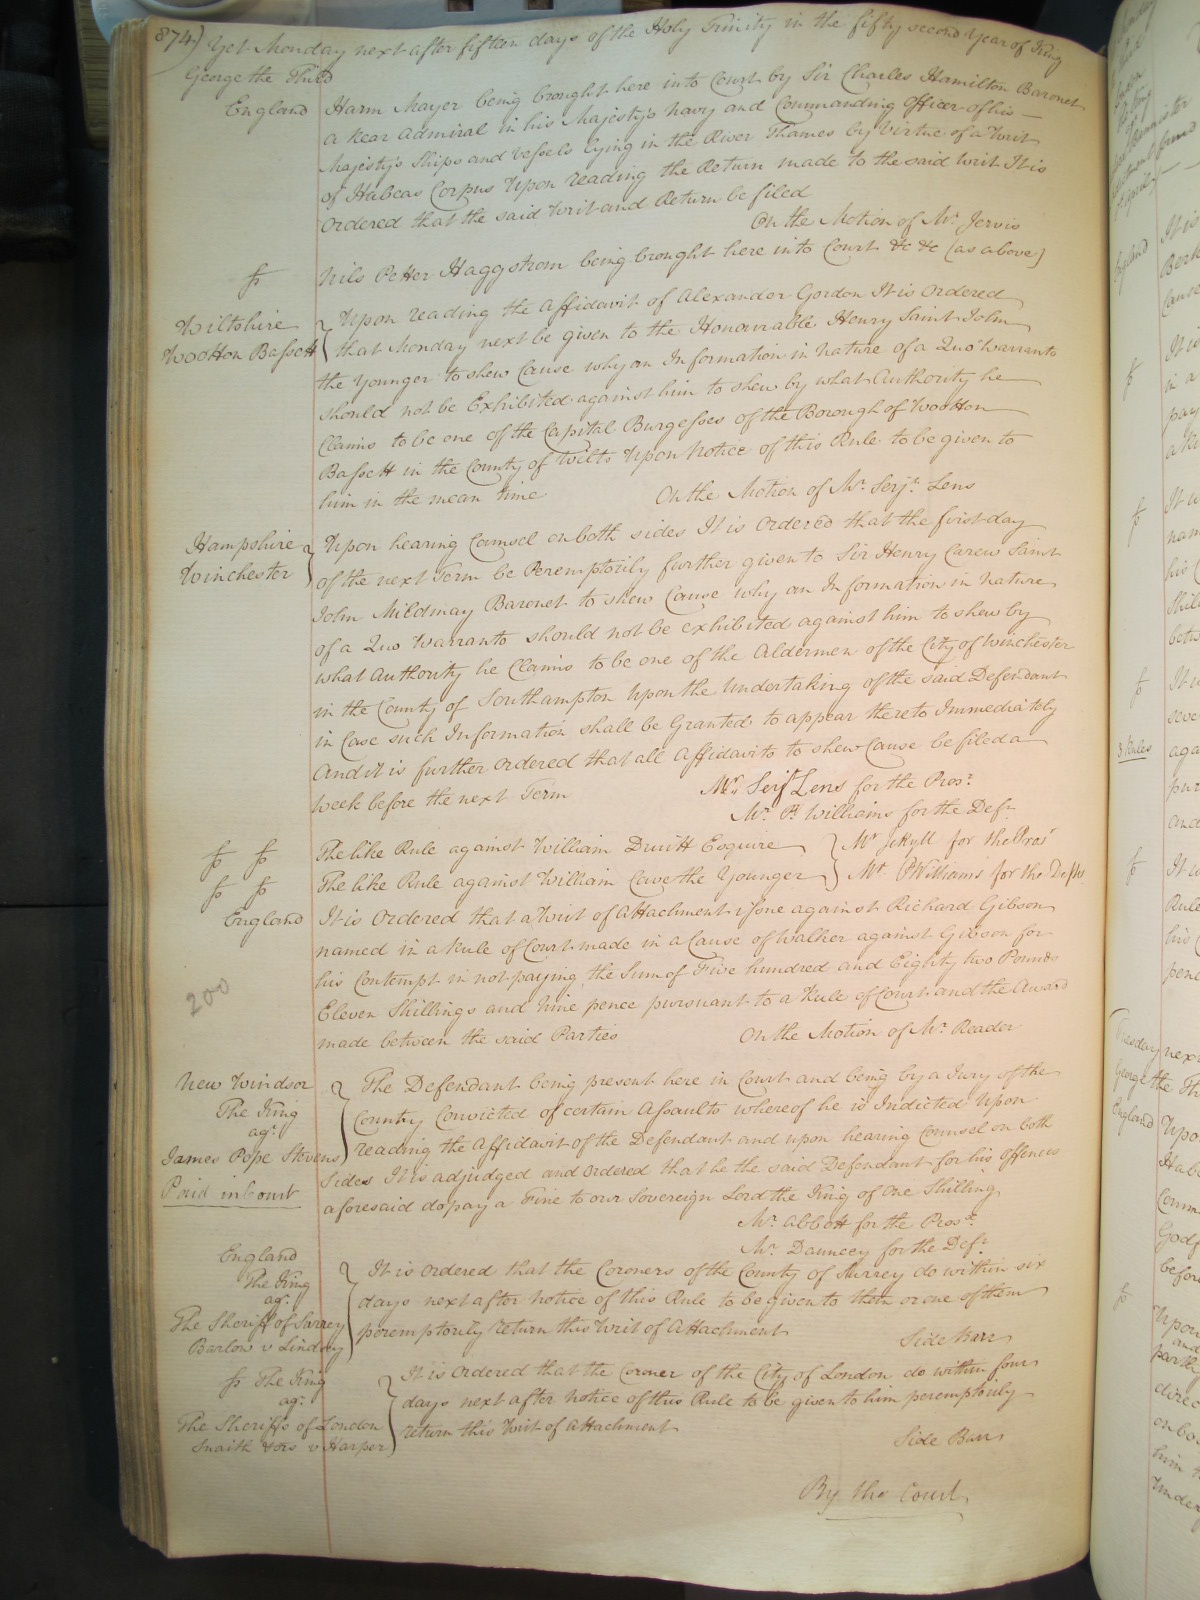 874) Yet Monday next after fifteen days of the Holy Trinity in the fifty second Year of King
George the Third
England Harm Mayer being brought here into Court by Sir Charles Hamilton Baronet
a Rear Admiral in his Majesty's Navy and Commanding Officer of his
Majesty's Ships and Vessels lying in the River Thames by Virtue of a Writ
of Habeas Corpus Upon reading the Return made to the said Writ It is
Ordered that the said Writ and Return be filed
On the Motion of Mr. Jervis
Nils Petter Haggstrom being brought here into Court &c &c (as above)
Wiltshire
Wootton Bassett
Upon reading the Affidavit of Alexander Gordon It is Ordered
that Monday next be given to the Honourable Henry Saint John
the Younger to shew Cause why an Information in Nature of a Quo Warranto
should not be Exhibited against him to shew by what Authority he
Claims to be one of the Capital Burgesses of the Borough of Wootton
Bassett in the County of Wilts Upon Notice of this Rule to be given to
him in the mean time On the Motion of Mr. Serjt. Lens
Hampshire
Winchester
Upon hearing Counsel on both sides It is Ordered that the first day
of the next Term be Peremptorily further given to Sir Henry Carew Saint
John Mildmay Baronet to shew Cause why an Information in Nature
of a Quo Warranto should not be exhibited against him to shew by
what Authority he Claims to be one of the Aldermen of the City of Winchester
in the County of Southampton Upon the Undertaking of the said Defendant
in Case such Information shall be Granted to appear thereto Immediately
And it is further Ordered that all Affidavits to shew Cause be filed a
Week before the next Term Mr. Serjt Lens for the Pros.r
Mr. P. Williams for the Def.t
The like Rule against William Druitt Esquire Mr Jekyll for the Pros.r
The like Rule against William Cave the Younger Mr. P Williams for the Defts.
England It is Ordered that a Writ of Attachment issue against Richard Gibson
named in a Rule of Court made in a Cause of Walker against Gibson for
his Contempt in not paying the Sum of Five hundred and Eighty two Pounds
Eleven Shillings and Nine pence pursuant to a Rule of Court and the Award
200
made between the said Parties On the Motion of Mr. Reader
New Windsor
The King
agt.
James Pope Stevens
Paid in Court
The Defendant being present here in Court and being by a Jury of the
County Convicted of certain Assaults whereof he is Indicted Upon
reading the Affidavit of the Defendant and upon hearing Counsel on both
Sides It is adjudged and Ordered that he the said Defendant for his Offences
aforesaid do pay a Fine to our Sovereign Lord the King of One Shilling
Mr. Abbott for the Pros.r
Mr. Dauncey for the Def.t
England
The King
agt.
The Sheriff of Surrey
Barlow v Lindsay
It is Ordered that the Coroners of the County of Surrey do within six
days next after notice of this Rule to be given to them or one of them
peremptorily Return this Writ of Attachment Side Barr
The King
agt.
The Sheriffs of London
Snaith & ors v Harper
It is Ordered that the Coroner of the City of London do within four
days next after notice of this Rule to be given to him peremptorily
return this Writ of Attachment
Side Barr
By the Court